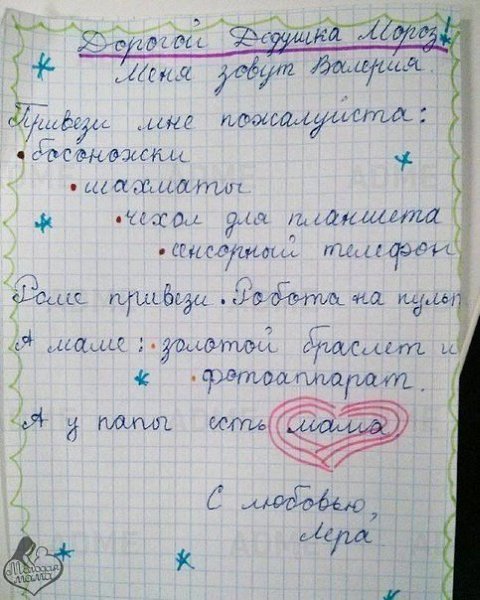 Дорогой Дедушка Мороз!
Меня зовут Валерия.
Привези мне пожалуйста:
• босоножки
• шахматы
• чехол для планшета
• сенсорный телефон
Роме привези • Робота на пульт
А маме: • золотой браслет и
• фотоаппарат.
А у папы есть мама
С любовью,
Лера
Молодая мама